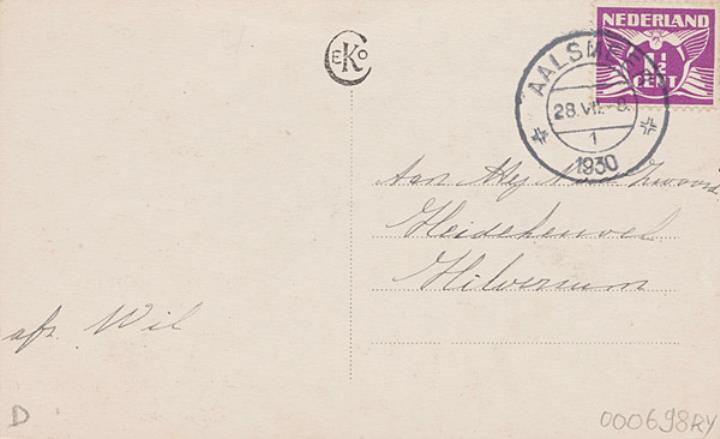 CEKO
NEDERLAND
1½
CENT
AALSMEER
28.VII.-8.
1
1930
Aan Mej
Heideheuvel
Hilversum
afz. Wil
D
000698RY